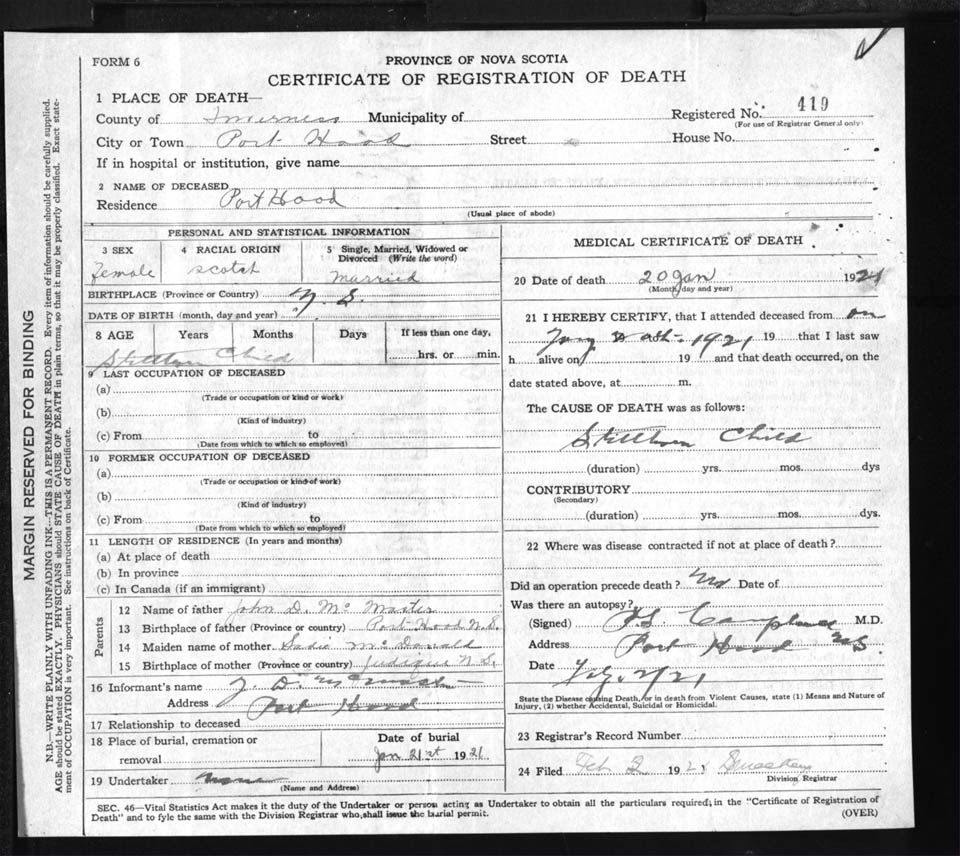 FORM 6
PROVINCE OF NOVA SCOTIA
CERTIFICATE OF REGISTRATION OF DEATH
1 PLACE OF DEATH—
County of Inverness Municipality of
Registered No. 419
(For use of Registrar General only)
City or Town Port Hood Street
House No.
If in hospital or institution, give name
2 NAME OF DECEASED
Residence Port Hood
(Usual place of abode)
PERSONAL AND STATISTICAL INFORMATION
3 SEX
female
4 RACIAL ORIGIN
Scotch
5 Single, Married, Widowed or Divorced (Write the word)
Married
BIRTHPLACE (Province or Country) N. S.
DATE OF BIRTH (month, day and year)
8 AGE Years Months Days If less than one day,
hrs. or min.
Stillborn Child
9 LAST OCCUPATION OF DECEASED
(a)
(Trade or occupation or kind or work)
(b)
(Kind of industry)
(c) From to
(Date from which to which so employed)
10 FORMER OCCUPATION OF DECEASED
(a)
(Trade or occupation or kind of work)
(b)
(Kind of industry)
(c) From to
(Date from which to which so employed)
11 LENGTH OF RESIDENCE (In years and months)
(a) At place of death
(b) In province
(c) In Canada (if an immigrant)
Parents
12 Name of father John D. Mc Master
13 Birthplace of father (Province or country) Port Hood N.S.
14 Maiden name of mother Sadie McDonald
15 Birthplace of mother (Province or country) Judique N S.
16 Informant's name J. D. McMaster
Address Port Hood
17 Relationship to deceased
18 Place of burial, cremation or removal
Date of burial
Jan 21st 1921
19 Undertaker None
(Name and Address)
MEDICAL CERTIFICATE OF DEATH
20 Date of death 20 Jan 1921
(Month, day and year)
21 I HEREBY CERTIFY, that I attended deceased from on
1921 19 that I last saw
h alive on 19 and that death occurred, on the
date stated above, at m.
The CAUSE OF DEATH was as follows:
Stillborn Child
(duration) yrs. mos. dys
CONTRIBUTORY
(Secondary)
(duration) yrs. mos. dys.
22 Where was disease contracted if not at place of death?
Did an operation precede death? No Date of
Was there an autopsy?
(Signed) Campbell M.D.
Address Port Hood N.S.
Date 2/21
State the Disease causing Death, or in death from Violent Causes, state (1) Means and Nature of
Injury, (2) whether Accidental, Suicidal or Homicidal.
23 Registrar's Record Number
24 Filed Feb 2 1921
Division Registrar
SEC. 46—Vital Statistics Act makes it the duty of the Undertaker or person acting as Undertaker to obtain all the particulars required in the "Certificate of Registration of
Death" and to fyle the same with the Division Registrar who shall issue the burial permit.
(OVER)
MARGIN RESERVED FOR BINDING
N.B.—WRITE PLAINLY WITH UNFADING INK—THIS IS A PERMANENT RECORD. Every item of information should be carefully supplied.
AGE should be stated EXACTLY. PHYSICIANS should STATE CAUSE OF DEATH in plain terms, so that it may be properly classified. Exact state-
ment of OCCUPATION is very important. See instructions on back of Certificate.